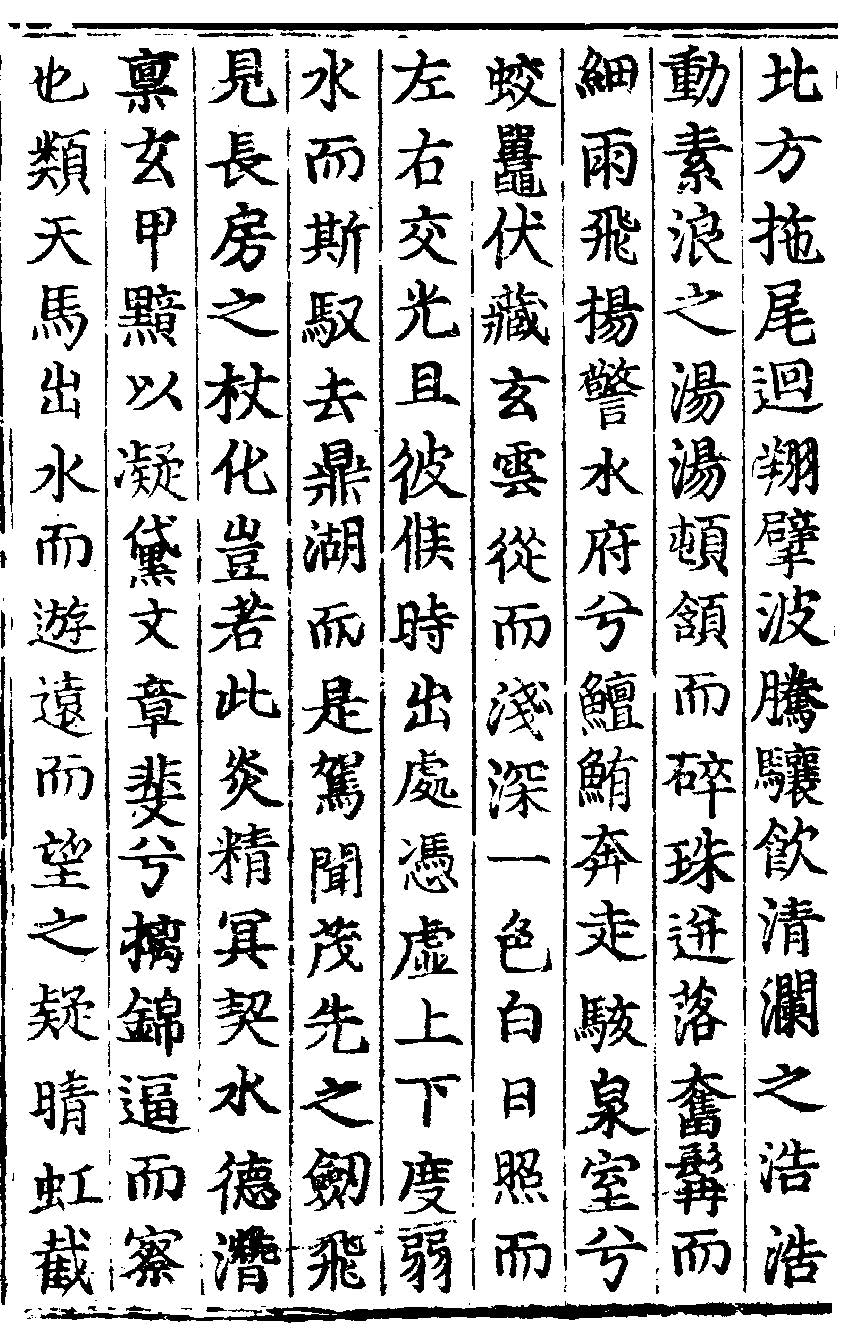 北方拖尾迴翔擘波騰驤飲清瀾之浩浩
動素浪之湯湯頓頷而碎珠迸落奮髯而
細雨飛揚警水府兮鱣鮪奔走駭泉室兮
蛟鼉伏藏玄雲從而淺深一色白日照而
左右交光且彼候時出處憑虛上下度弱
水而斯馭去鼎湖而是駕聞茂先之劒飛
見長房之杖化豈若此炎精冥契水德潛
稟玄甲黯以凝黛文章斐兮摛錦逼而察
也類天馬出水而遊遠而望之疑晴虹截